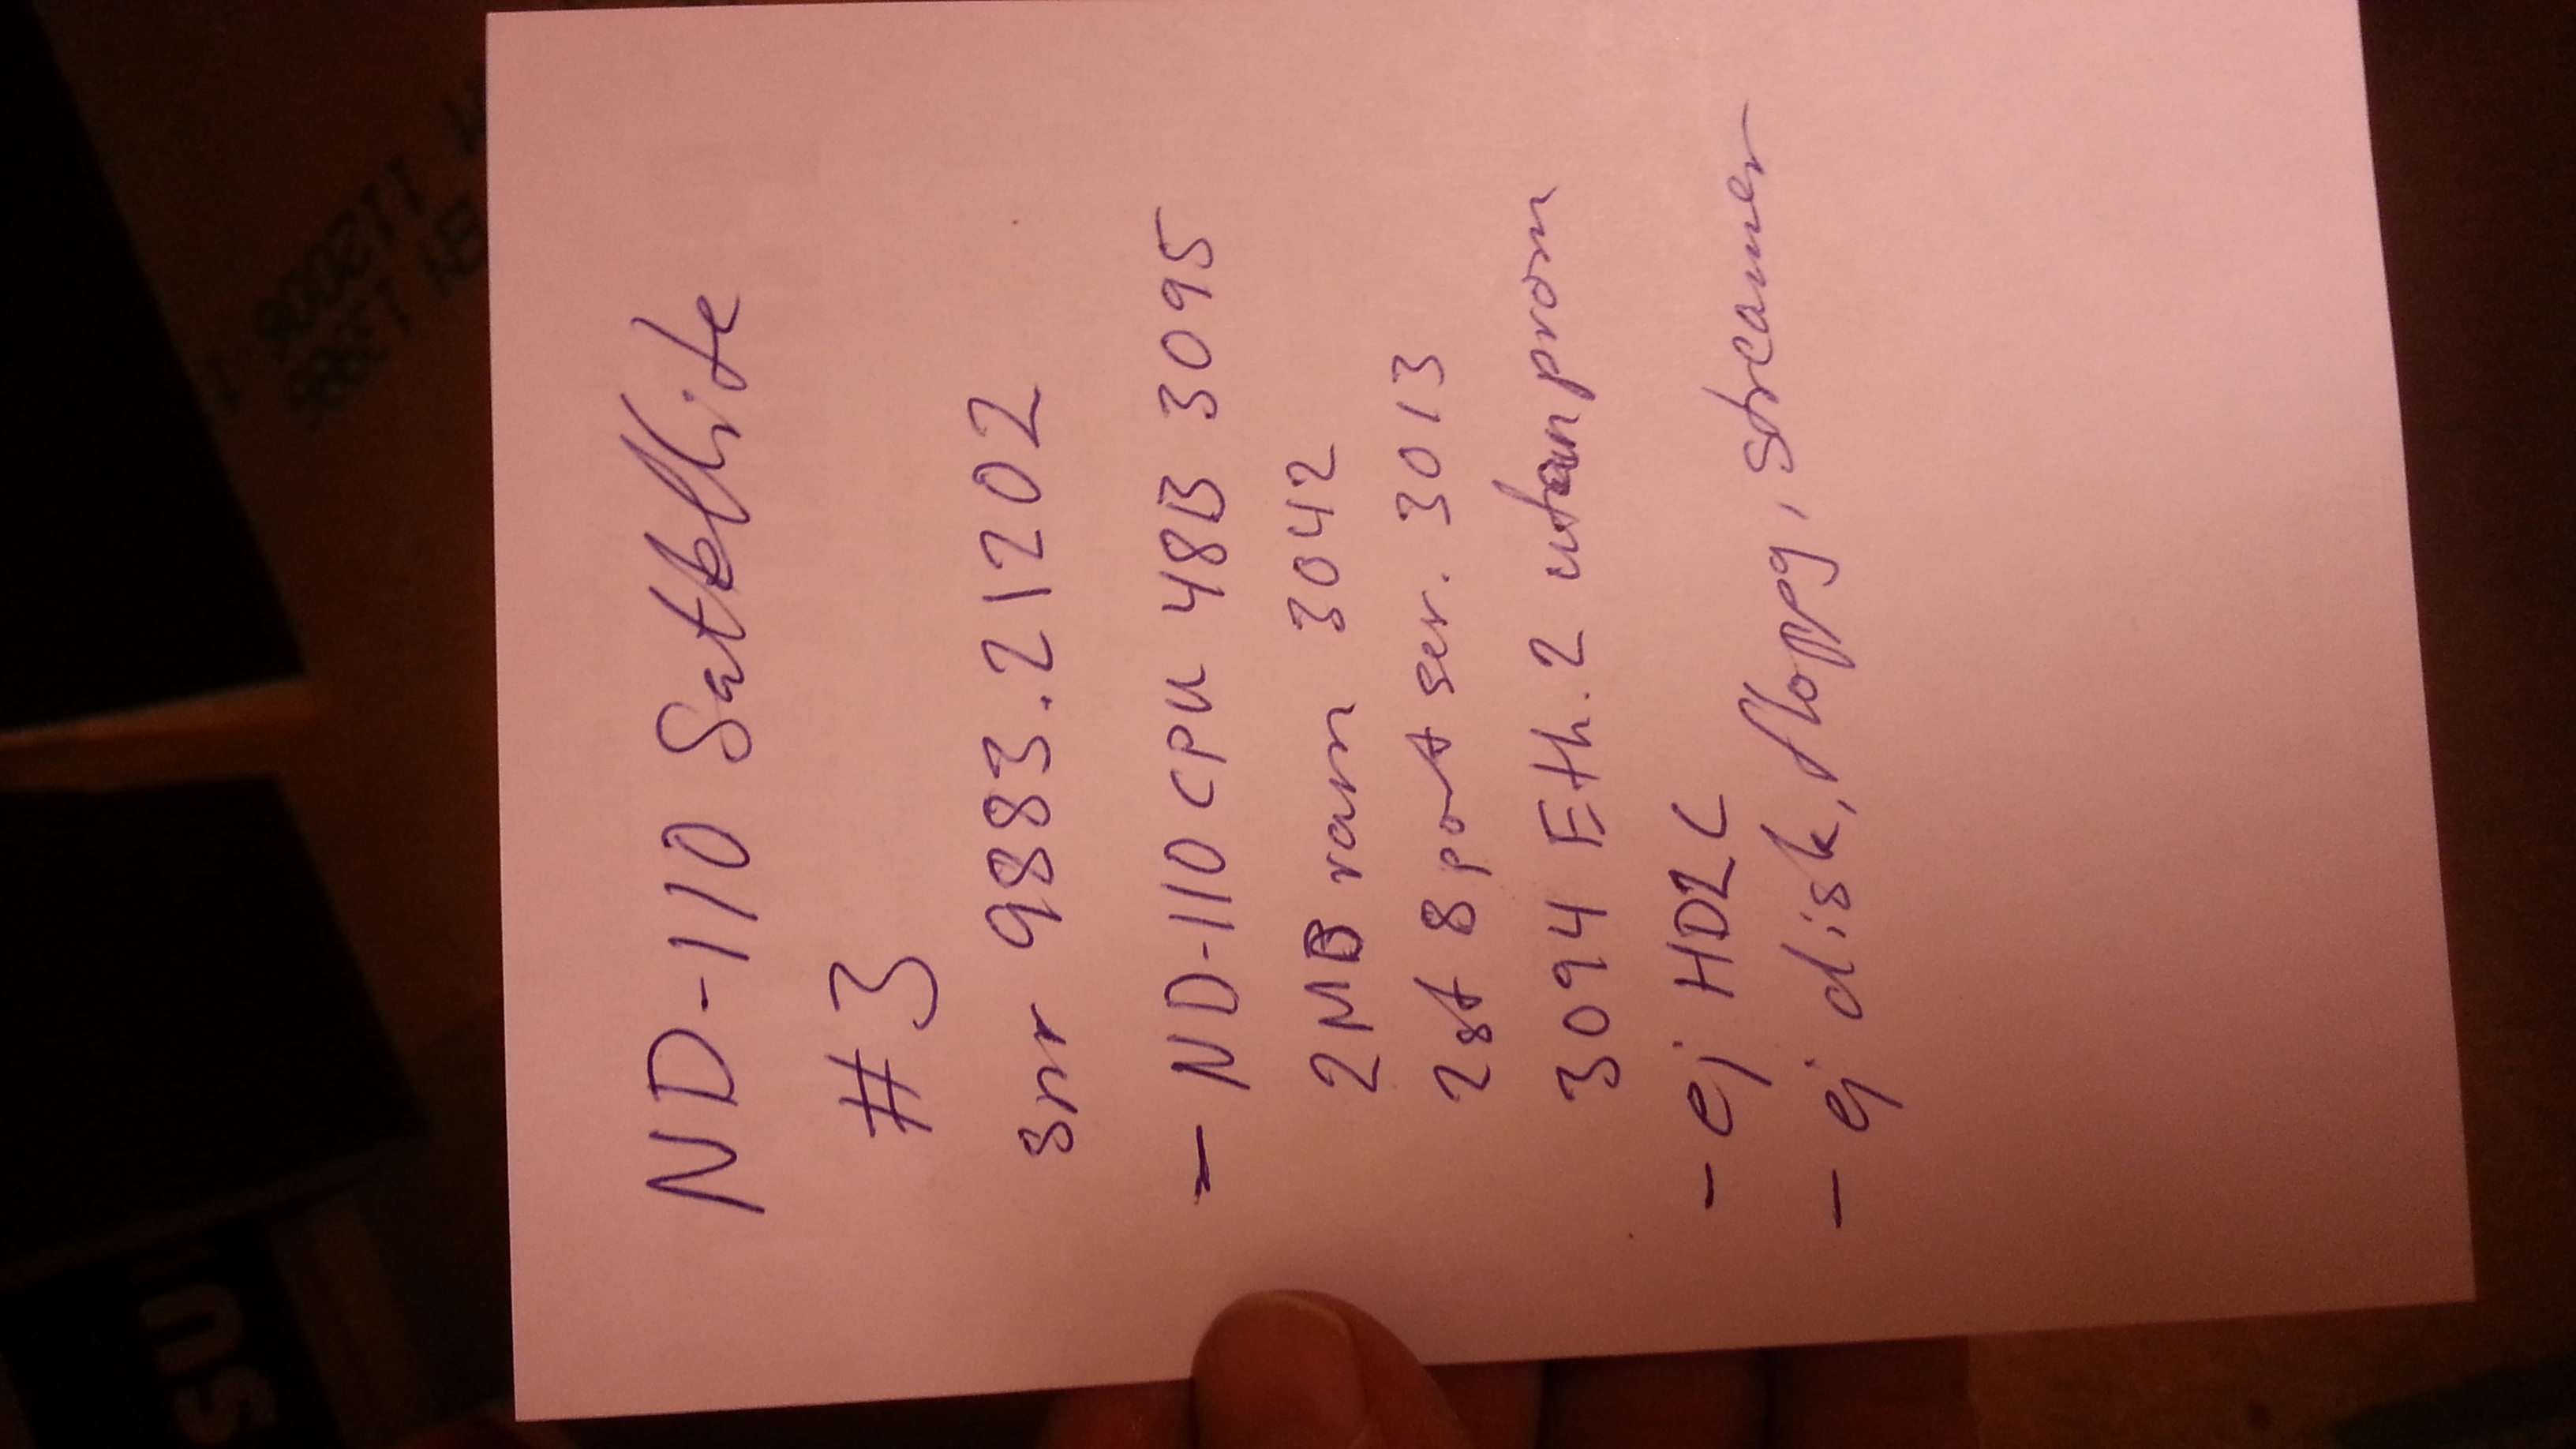 ND-110 Satellite
#3
snr 9883.21202
- ND-110 CPU 48B 3095
2MB ram 3042
2st 8 port ser. 3013
3094 Eth.2 utan prom
- ej HDLC
- ej disk, floppy, streamer
SUN